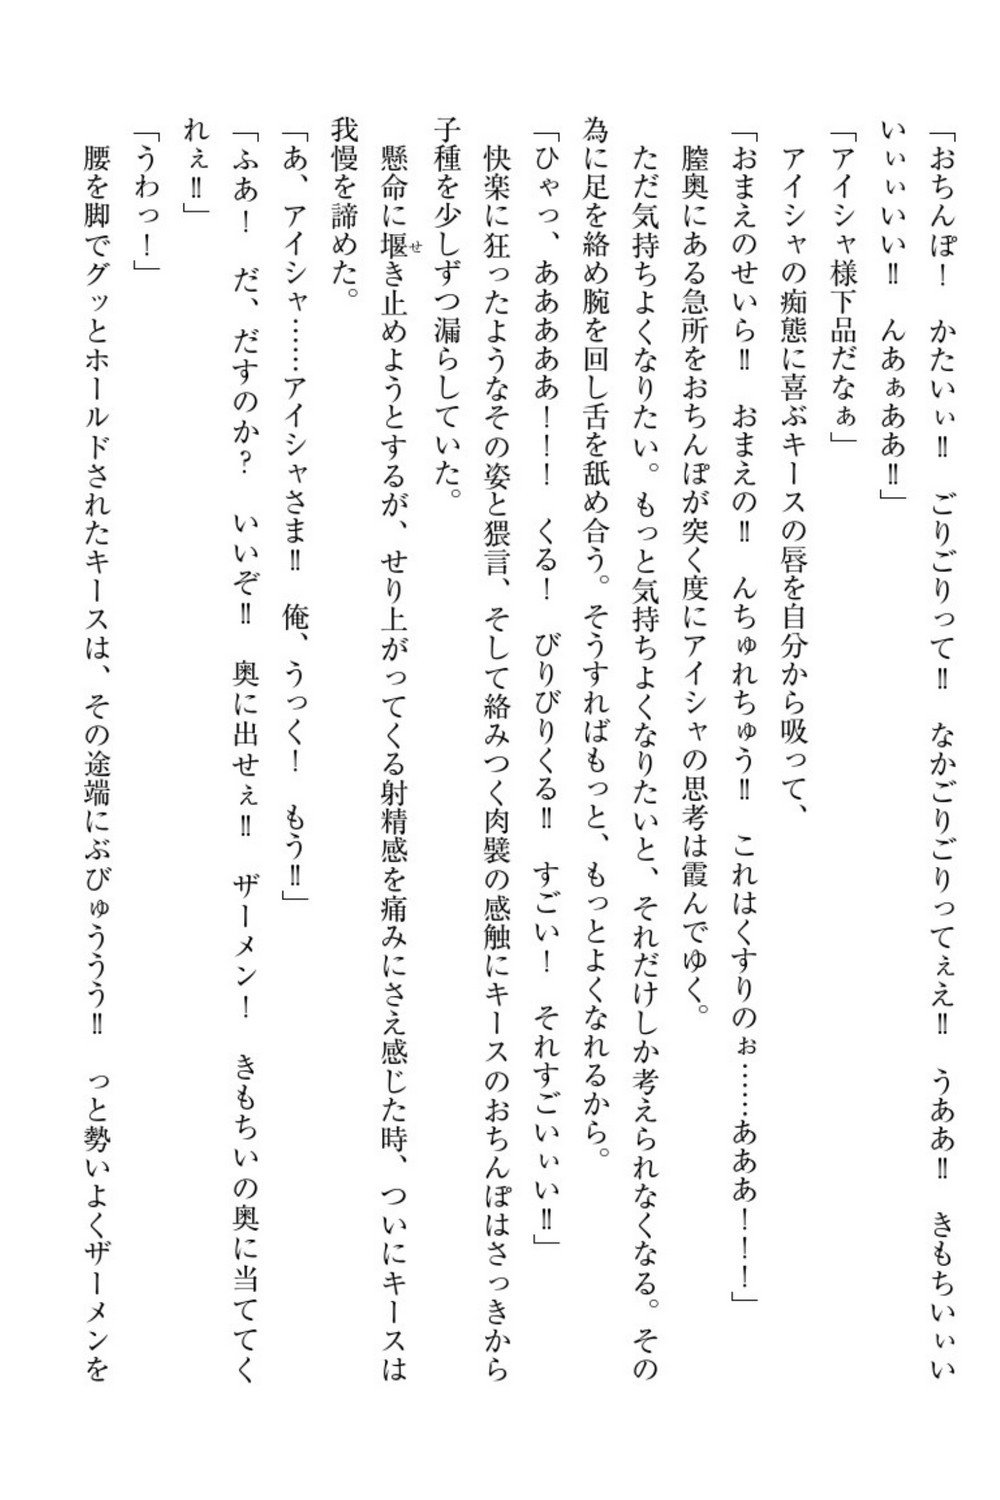 「おちんぽ！　かたいぃ‼　ごりごりって‼　なかごりごりってぇえ‼　うああ‼　きもちいぃぃい
いぃぃいい‼　んあぁああ‼」
「アイシャ様下品だなぁ」
　アイシャの痴態に喜ぶキースの唇を自分から吸って、
「おまえのせいら‼　おまえの‼　んちゅれちゅう‼　これはくすりのぉ……あああ！！！」
　膣奥にある急所をおちんぽが突く度にアイシャの思考は霞んでゆく。
　ただ気持ちよくなりたい。もっと気持ちよくなりたいと、それだけしか考えられなくなる。その
為に足を絡め腕を回し舌を舐め合う。そうすればもっと、もっとよくなれるから。
「ひゃっ、あああああ！！！　くる！　びりびりくる‼　すごい！　それすごいぃい‼」
　快楽に狂ったようなその姿と猥言、そして絡みつく肉襞の感触にキースのおちんぽはさっきから
子種を少しずつ漏らしていた。
　懸命に堰き止めようとするが、せり上がってくる射精感を痛みにさえ感じた時、ついにキースは
我慢を諦めた。
「あ、アイシャ……アイシャさま‼　俺、うっく！　もう‼」
「ふあ！　だ、だすのか？　いいぞ‼　奥に出せぇ‼　ザーメン！　きもちいの奥に当ててく
れぇ‼」
「うわっ！」
　腰を脚でグッとホールドされたキースは、その途端にぶびゅううう‼　っと勢いよくザーメンを